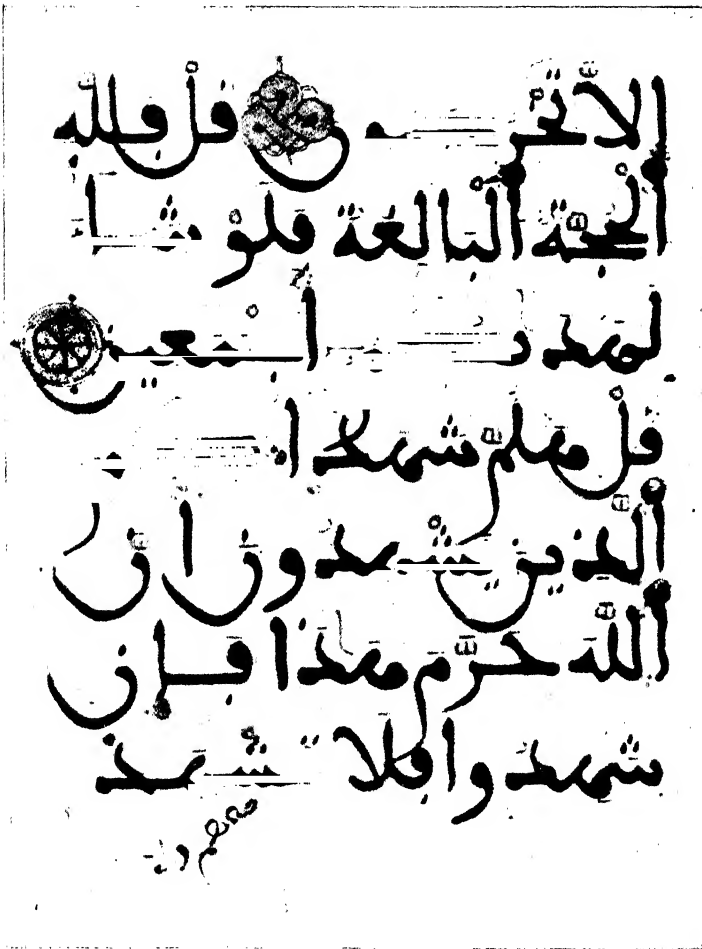 الا تخرصون قل فلله
الحجة البالغة فلو شاء
اجمعين
قل هلم شهدا
الذين يشهدون ان
الله حرّم هذا فإن
شهدوا فلا تشهد
معهم ولا